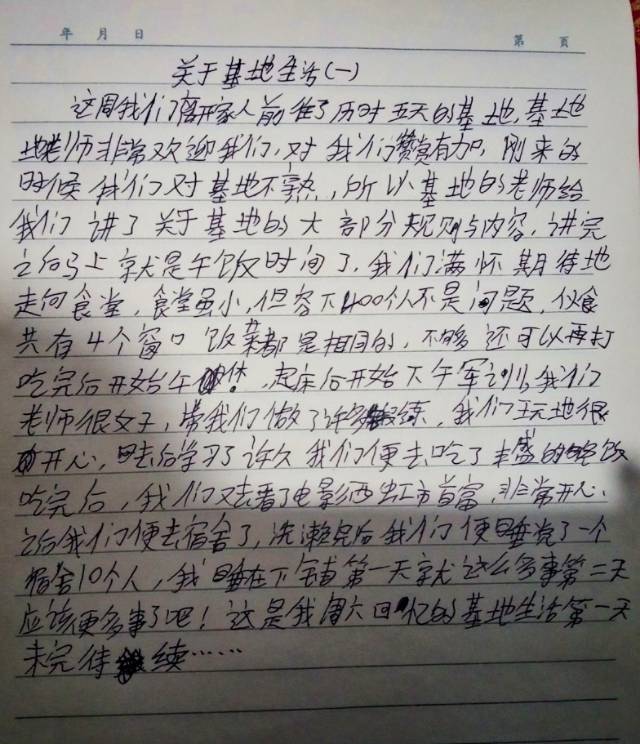 年 月 日 第 页
关于基地生活(一)
这周我们离开家人前往了历时五天的基地,基地
地老师非常欢迎我们,对我们赞赏有加,刚来的
时候我们对基地不熟,所以基地的老师给
我们讲了关于基地的大部分规则与内容,讲完
之后马上就是午饭时间了,我们满怀期待地
走向食堂,食堂虽小,但容下400个人不是问题,伙食
共有4个窗口饭菜都是相同的,不够还可以再打
吃完后开始午休,起床后开始下午军训,我们
老师很好,带我们做了许多训练,我们玩地很
开心,回去后学习了许久我们便去吃了丰盛的晚饭
吃完后,我们又去看了电影西虹市首富,非常开心,
之后我们便去宿舍了,洗漱完后我们便睡觉了一个
宿舍10个人,我睡在下铺第一天就这么多事第二天
应该更多事了吧!这是我周六回忆的基地生活第一天
未完待续……